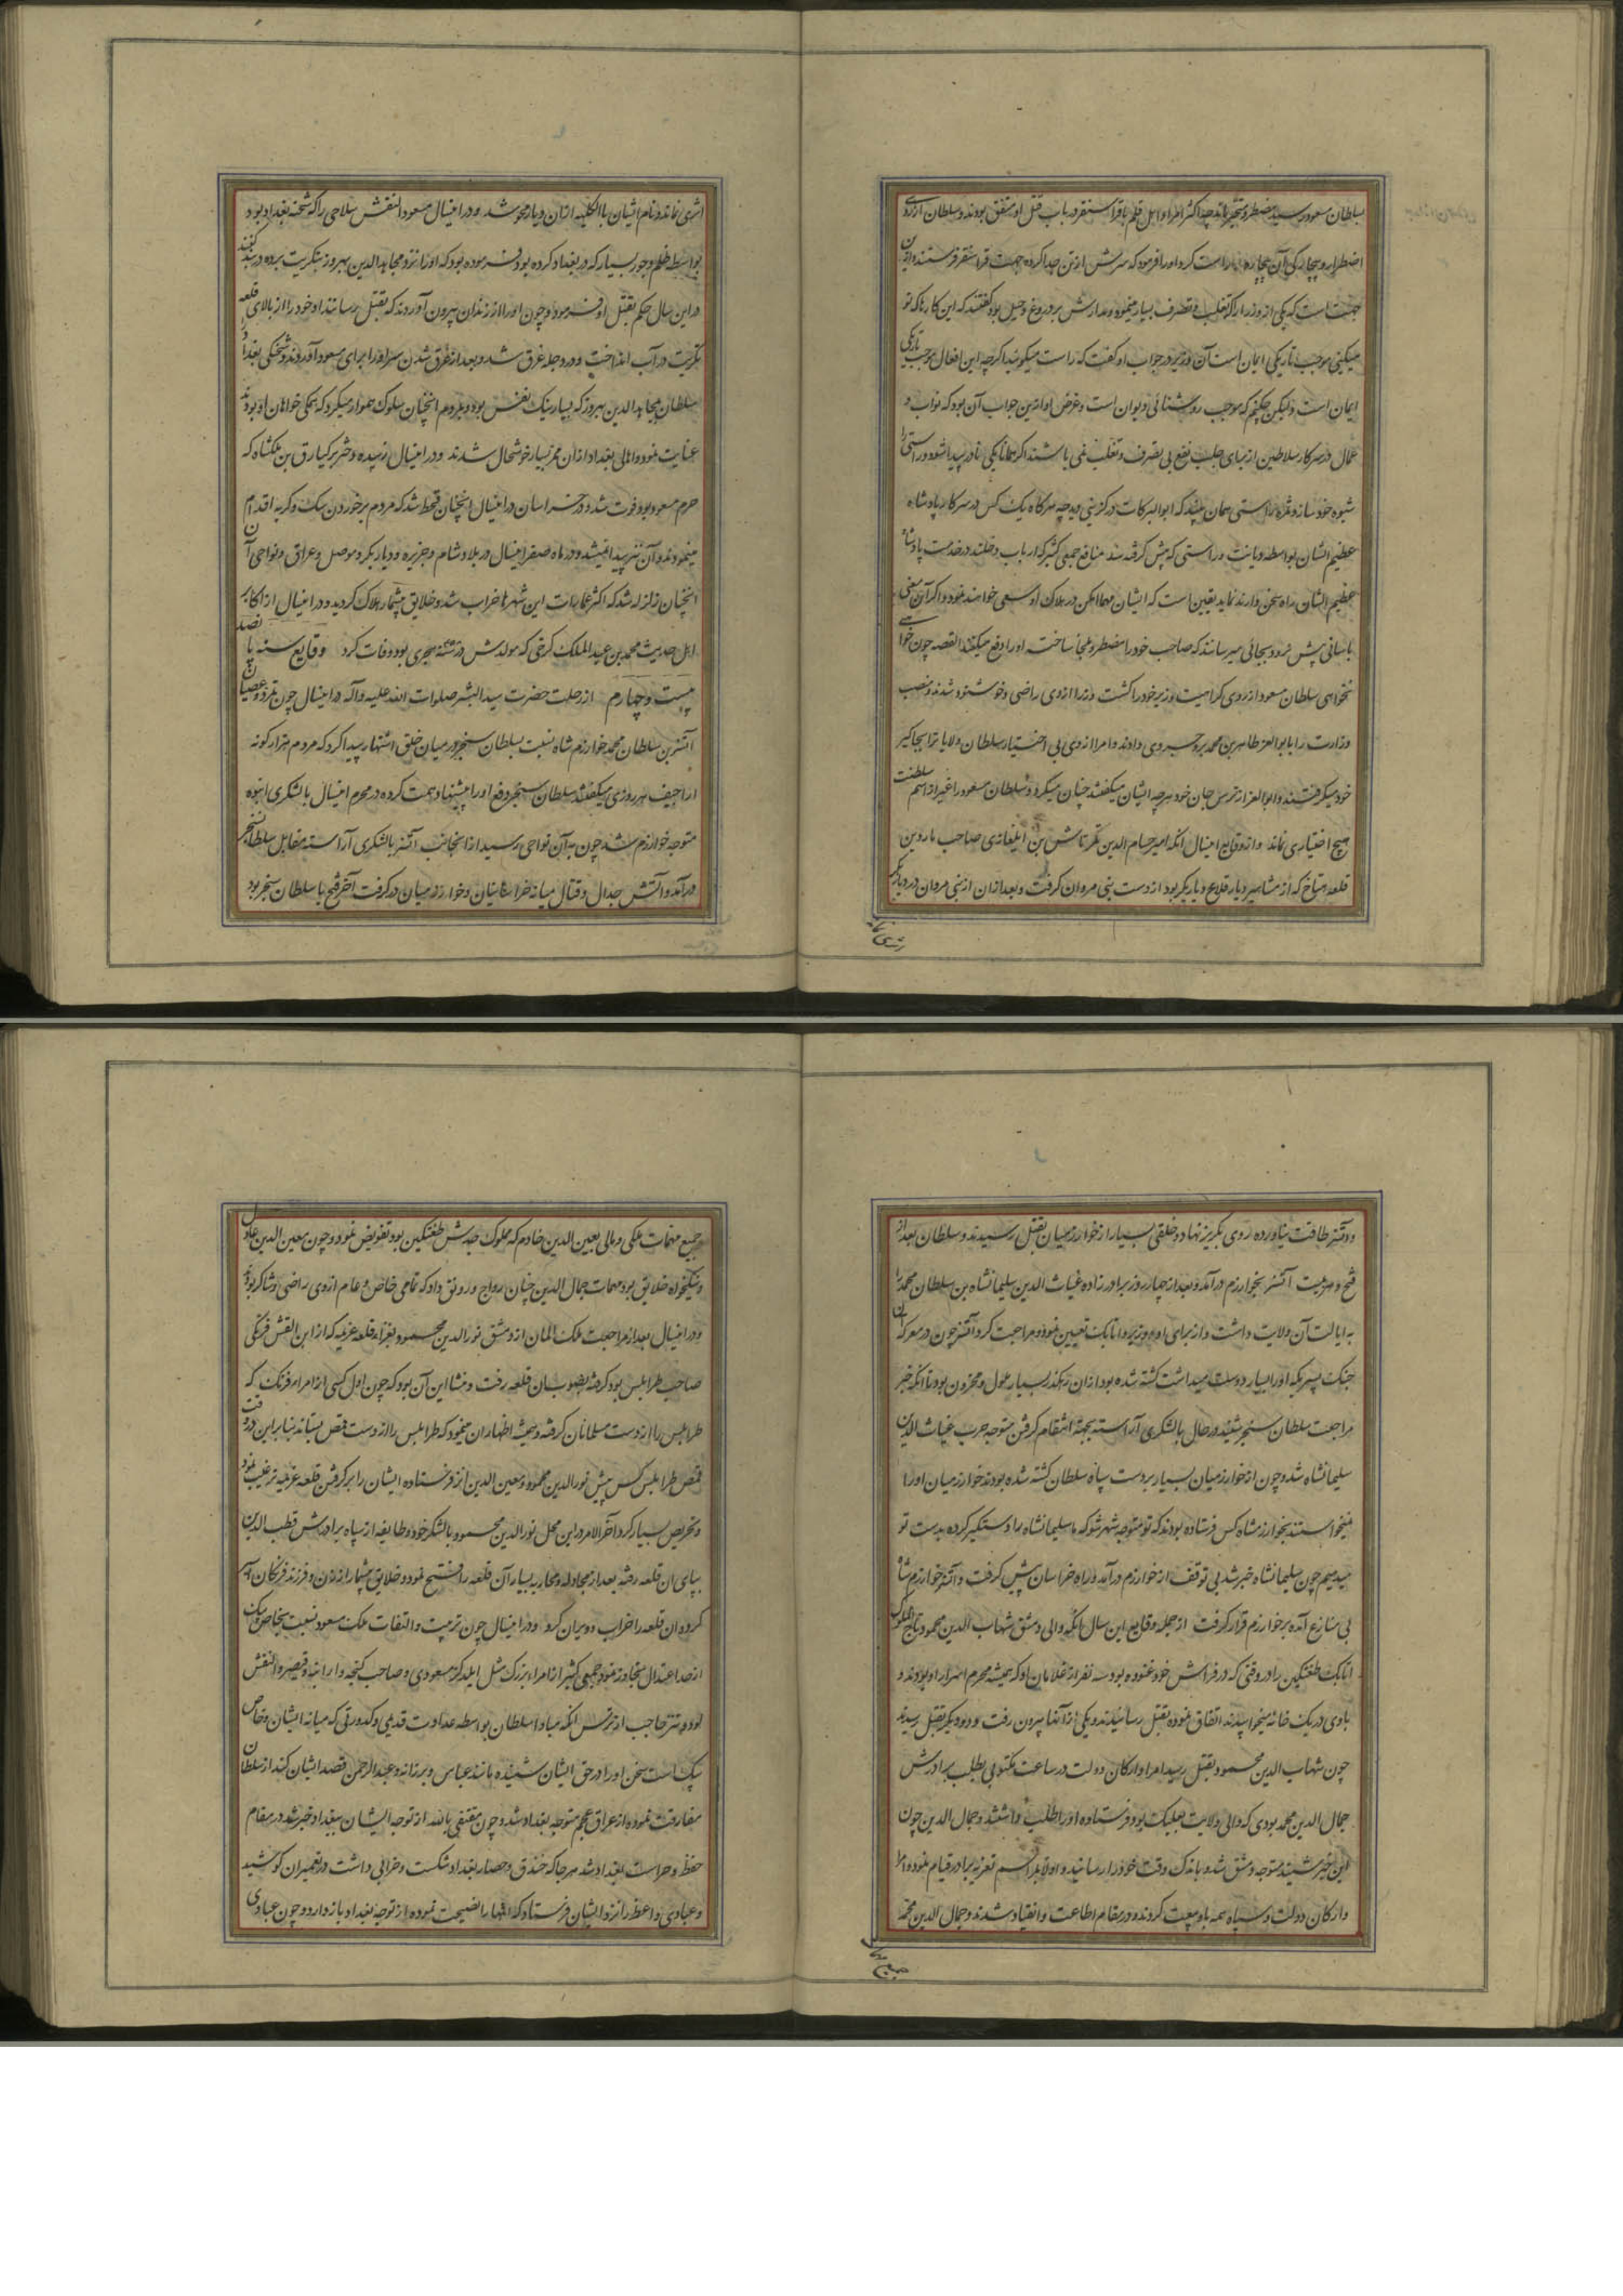 بسلطان مسعود رسید مضطر و متحیر ماند چه اکثر امرا و اهل قلم با قراسنقر در باب قتل او متفق بودند و سلطان از روی
اضطرار و بیچارگی آن بیچاره را راست کرد و او را فرمود که سرش از تن جدا کرده جهت قراسنقر فرستند و ازین
جهت است که یکی از وزرا را که تغلب و تصرف بسیار مینمود و مدارش بر دروغ و حیل بود گفتند که این کارها که تو
میکنی موجب تاریکی ایمان است آن وزیر در جواب او گفت که راست میگوئید اگرچه این افعال موجب تاریکی
ایمان است ولیکن چکنم که موجب روشنائی دیوان است و غرض او ازین جواب آن بود که نواب و
عمال در سرکار سلاطین از برای جلب نفع بی تصرف و تغلب نمی باشند اگر همانا یکی نادر پیدا شود و راستی را
شیوه خود سازد ثمره راستی همان بیند که ابوالبرکات درگزینی دید چه هرگاه یک کس در سرکار پادشاه
عظیم الشان بواسطه دیانت و راستی که پیش گرفته سد منافع جمعی کثیر که ارباب دخلند در خدمت پادشاه
عظیم الشان راه سخن دارند نماید یقین است که ایشان مهما امکن در هلاک او سعی خواهند نمود و اگر آن معنی
باسانی پیش نرود بجائی میرسانند که صاحب خود را مضطر و ملجأ ساخته او را دفع میکنند القصه چون خواهی
نخواهی سلطان مسعود از روی کراهیت وزیر خود را کشت وزرا از وی راضی و خوشنود شدند و منصب
وزارت را بابوالعز طاهر بن محمد بروجردی دادند و امرا از وی بی اختیار سلطان ولایات را بجاگیر
خود میگرفتند و ابوالعز از ترس جان خود هرچه ایشان میگفتند چنان میکرد و سلطان مسعود را غیر از اسم سلطنت
هیچ اختیاری نماند و از وقایع اینسال آنکه امیر حسام الدین تمرتاش بن ایلغازی صاحب ماردین
قلعه هتاخ که از مشاهیر دیار قلاع دیاربکر بود از دست بنی مروان گرفت و بعد از ان از بنی مروان در دیاربکر
اثری نماند
اثری نماند و نام ایشان بالکلیه ازان دیار محو شد و در اینسال مسعود القش سلاحی را که شحنه بغداد بود
بواسطه ظلم و جور بسیار که در بغداد کرده بود فرموده بود که او را نزد مجاهد الدین بهروز بتکریت برده در بند کنند
در این سال حکم بقتل او فرمود و چون او را از زندان بیرون آوردند که بقتل رسانند او خود را از بالای قلعه
تکریت در آب انداخت و در دجله غرق شد و بعد از غرق شدن سر او را برای مسعود آوردند و شحنگی بغداد را
سلطان بمجاهد الدین بهروز که بسیار نیک نفس بود و بمردم انچنان سلوک هموار میکرد که همگی خواهان او بودند
عنایت نمود و اهالی بغداد ازان ممر بسیار خوشحال شدند و در اینسال زبیده دختر برکیارق بن ملکشاه که
حرم مسعود بود فوت شد و در خراسان در اینسال انچنان قحط شد که مردم بر خوردن سگ و گربه اقدام
مینمودند و آن نیز پیدا نمیشد و در ماه صفر اینسال در بلاد شام و جزیره و دیاربکر و موصل و عراق و نواحی آن
انچنان زلزله شد که اکثر عمارات این شهرها خراب شد و خلایق بیشمار هلاک گردید و در اینسال از اکابر
اهل حدیث محمد بن عبد الملک کرجی که مولدش در سنه هجری بود وفات کرد وقایع سنه پانصد
بیست و چهارم از رحلت حضرت سید البشر صلوات الله علیه وآله در اینسال چون تمرد و عصیان
آتسز بن سلطان محمد خوارزم شاه نسبت بسلطان سنجر در میان خلق اشتهار پیدا کرد که مردم هزار گونه
اراجیف هر روزی میگفتند سلطان سنجر دفع او را پیشنهاد همت کرده در محرم اینسال با لشکری انبوه
متوجه خوارزم شد چون به آن نواحی رسید از انجانب آتسز با لشکری آراسته مقابل سلطان سنجر
درآمد و آتش جدال و قتال میانه خراسانیان و خوارزمیان درگرفت آخر فتح با سلطان سنجر بود
و آتسز طاقت نیاورده روی بگریز نهاد و خلقی بسیار از خوارزمیان بقتل رسیدند و سلطان بعد از
فتح و هزیمت آتسز بخوارزم درآمد و بعد از چهار روز برادرزاده غیاث الدین سلیمانشاه بن سلطان محمد را
به ایالت آن ولایت داشت و از برای او وزیر و اتابک تعیین نمود و مراجعت کرد و آتسز چون در معرکه
جنگ پسر یکه او را بسیار دوست میداشت کشته شده بود ازان رهگذر بسیار ملول و محزون بود تا آنکه خبر
مراجعت سلطان سنجر شنید در حال با لشکری آراسته بجهة انتقام گرفتن متوجه حرب غیاث الدین
سلیمانشاه شد و چون از خوارزمیان بسیار بر دست سپاه سلطان کشته شده بودند خوارزمیان او را
میخواستند بخوارزمشاه کس فرستاده بودند که تو متوجه شهر شو که ما سلیمانشاه را دستگیر کرده بدست تو
میدهیم چون سلیمانشاه خبر شد بی توقف از خوارزم درآمد و راه خراسان پیش گرفت و آتسز خوارزم شاه
بی منازع آمده بر خوارزم قرار گرفت از جمله وقایع این سال آنکه والی دمشق شهاب الدین محمود بن تاج الملوک
اتابک طغتکین را در وقتی که در فراش خود غنوده بود سه نفر از غلامان او که همیشه محرم اسرار او بودند و
با وی در یک خانه میخوابیدند اتفاق نموده بقتل رسانیدند و یکی از آنها بیرون رفت و دو دیگر بقتل رسیدند
چون شهاب الدین محمود بقتل رسید امرا و ارکان دولت در ساعت مکتوبی بطلب برادرش
جمال الدین محمد بوری که والی ولایت بعلبک بود فرستاده او را طلب داشتند و جمال الدین چون
این خبر شنید متوجه دمشق شد و باندک وقت خود را رسانید و اولا بمراسم تعزیه برادر قیام نمود و امرا
و ارکان دولت و سپاه همه باو بیعت کردند و در مقام اطاعت و انقیاد شدند و جمال الدین محمد
جمیع مهمات
جمیع مهمات ملکی و مالی بمعین الدین خادم که مملوک جدش طغتکین بود تفویض نمود و چون معین الدین عادل
و نیکخواه خلایق بود مهمات جمال الدین چنان رواج و رونق داد که تمامی خاص و عام از وی راضی و شاکر بودند
و در اینسال بعد از مراجعت ملک المان از دمشق نور الدین محمود بغزاء قلعه عزیمه که از ابن القش فرنگی
صاحب طرابلس بود گرفته بصوب ان قلعه رفت و منشا این آن بود که چون اول کسی از امراء فرنگ که
طرابلس را از دست مسلمانان گرفته و همیشه اظهار ان مینمود که طرابلس را از دست قمص بستاند بنا براین دو وقت
قمص طرابلس کس پیش نور الدین محمود و معین الدین انز فرستاده ایشان را بر گرفتن قلعه عزیمه ترغیب نمود
و تحریص بسیار کرد آخر الامر در این محل نور الدین محمود با لشکر خود و طایفه از سپاه برادرش قطب الدین
بپای ان قلعه رفته بعد از مجادله و محاربه بسیار آن قلعه را فتح نمود و خلایق بیشمار از زن و فرزند فرنگان اسیر
کرد و ان قلعه را خراب و ویران کرد و در اینسال چون تربیت و التفات ملک مسعود نسبت بخاص بیک
از حد اعتدال تجاوز نمود جمعی کثیر از امراء بزرگ مثل ایلدگز مسعودی و صاحب گنجه و ارانیه و قیصر و القش
لود و تتر حاجب از ترس آنکه مبادا سلطان بواسطه عداوت قدیمی و کدورتی که میانه ایشان و خاص
بیک است سخن او را در حق ایشان شنیده مانند عباس و برزانه و عبد الرحمن قصد ایشان کند از سلطان
مفارقت نموده از عراق عجم متوجه بغداد شد و چون مقتفی بالله از توجه ایشان ببغداد خبر شد در مقام
حفظ و حراست بغداد شد هرجا که خندق و حصار بغداد شکست و خرابی داشت در تعمیر ان کوشید
و عبادی واعظ را نزد ایشان فرستاد که انها را نصیحت نموده از توجه بغداد باز دارد و چون عبادی